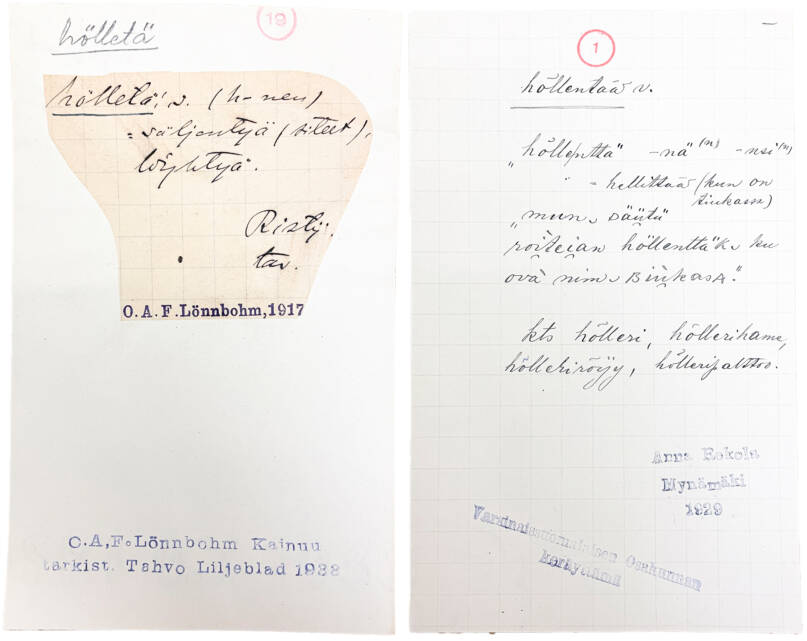 19
hölletä
hölletä: v. (h-nen)
= väljentyä (siteet),
löyhtyä.
Ristij.
tav.
O.A.F.Lönnbohm,1917
O.A.F.Lönnbohm Kainuu
tarkist. Tahvo Liljeblad 1938
1
höllentää v.
"hölleńttä" -nä(n) -nsi(n)
- hellittää (kun on
tiukassa)
"mun säütü
höllenttäk ku
ovä nim
kts hölleri, höllerihame,
hölleriröijy, hölleripalttoo.
Anna Eskola
Mynämäki
1929
Varsinaissuomalaisen Osakunnan
keräyttämä